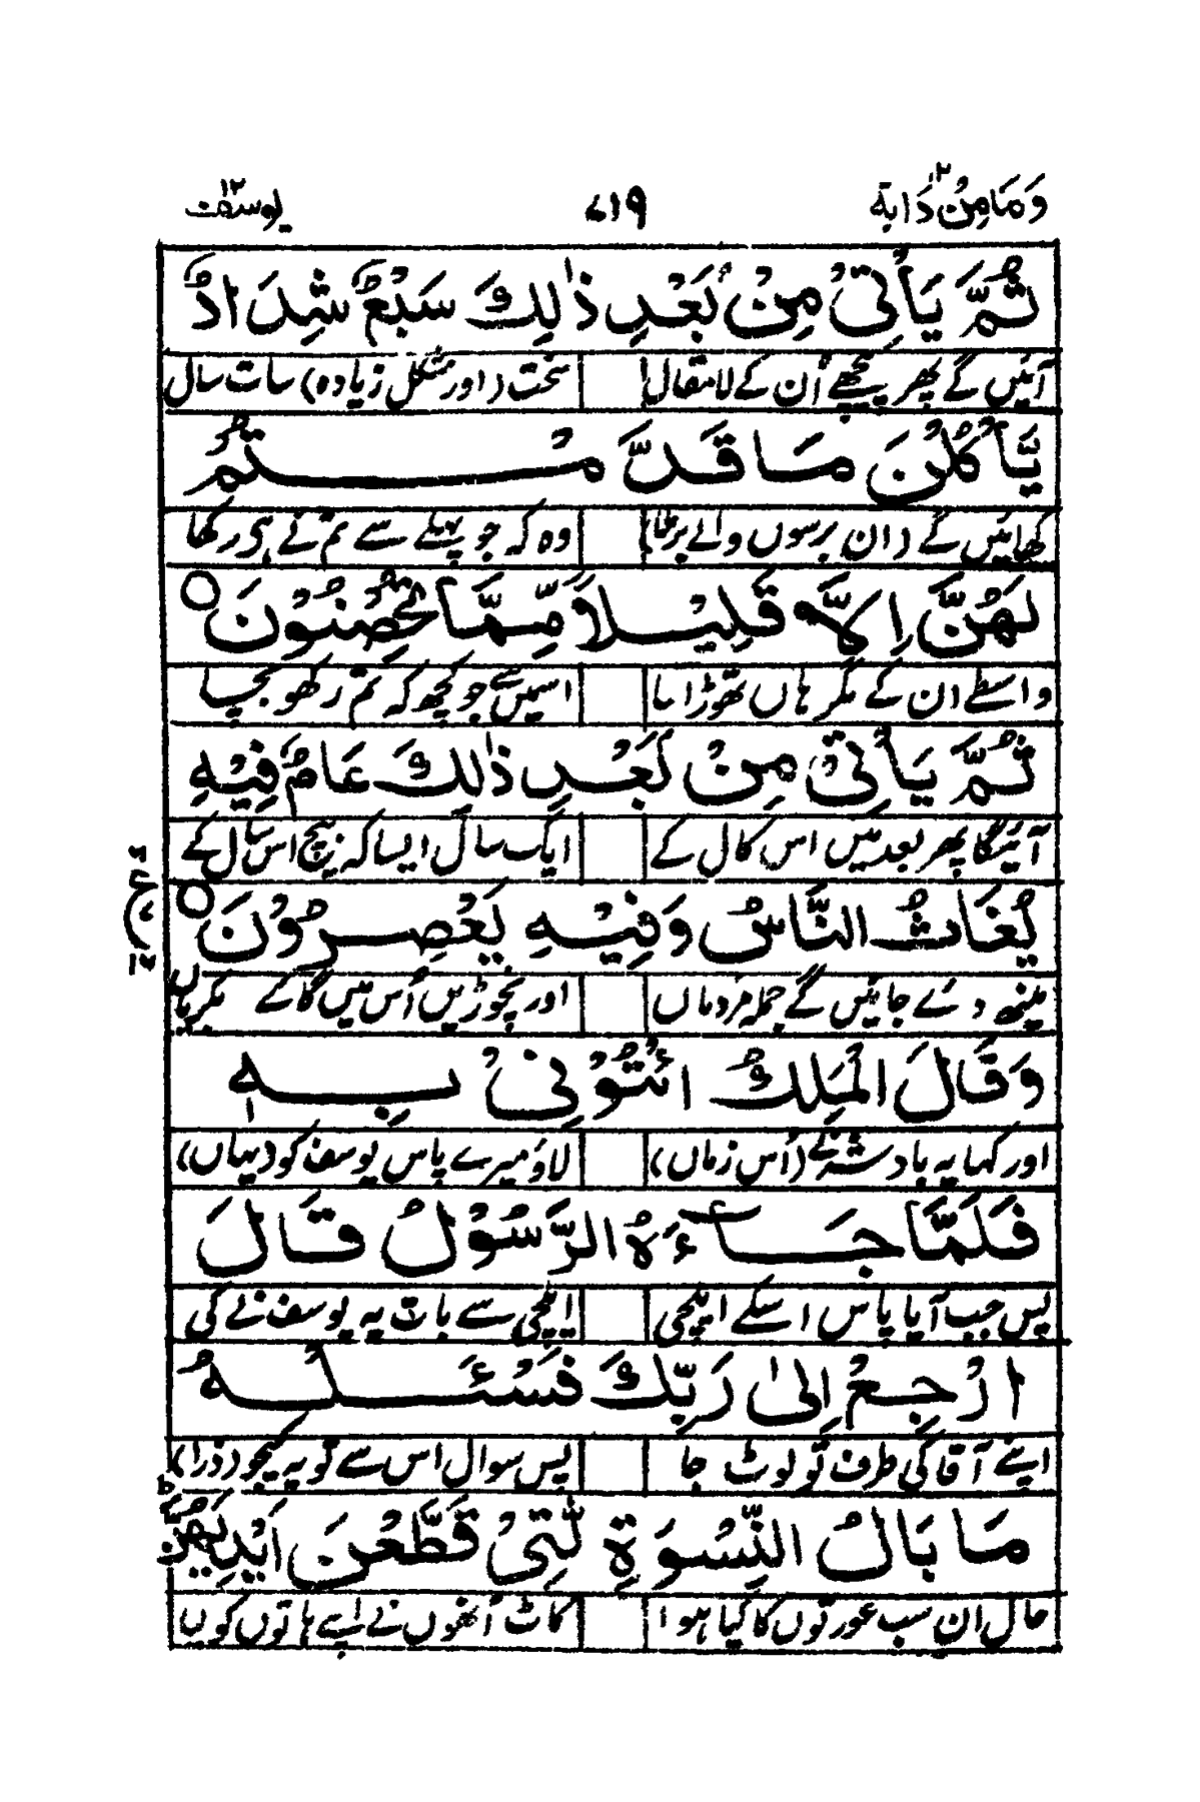 وَمَا مِنْ دَابة ١٢ ٧١٩ یوسف ١٢
ثُمَّ يَأْتِيْ مِنْۢ بَعْدِ ذٰلِكَ سَبْعٌ شِدَادٌ
آئیں گے پھر پیچھے اُن کے لامقال سخت (اور مشکل زیادہ) سات سال
يَّأْكُلْنَ مَا قَدَّمْتُمْ
کھائیں گے (ان برسوں والے برملا) وہ کہ جو پہلے سے تم نے ہی رکھا
لَهُنَّ اِلَّا قَلِيْلًا مِّمَّا تُحْصِنُوْنَ ○
واسطے ان کے مگر ہاں تھوڑا سا اسمیں سے جو کچھ کہ تم رکھو بچا
ثُمَّ يَأْتِيْ مِنْۢ بَعْدِ ذٰلِكَ عَامٌ فِيْهِ
آئیگا پھر بعد میں اس کال کے ایک سال ایسا کہ بیچ اس سال کے
يُغَاثُ النَّاسُ وَفِيْهِ يَعْصِرُوْنَ ○
مینھ دئے جائیں گے جملہ مردماں اور نچوڑیں اُس میں گا کے مکرماں
ع
وَقَالَ الْمَلِكُ ائْتُوْنِيْ بِهٖ
اور کہا یہ بادشہ نے (اُس زماں) لاؤ میرے پاس یوسف کو (یہاں)
فَلَمَّا جَآءَهُ الرَّسُوْلُ قَالَ
پس جب آیا پاس اسکے ایلچی ایلچی سے بات یہ یوسف نے کی
ارْجِعْ اِلٰى رَبِّكَ فَسْئَلْهُ
اپنے آقا کی طرف تو لوٹ جا پس سوال اس سے تو یہ کیجو (ذرا)
مَا بَالُ النِّسْوَةِ لّٰتِيْ قَطَّعْنَ اَيْدِيَهُنَّ ط
حال ان سب عورتوں کا کیا ہوا کاٹ اُنھوں نے اپنے ہاتوں کو یں